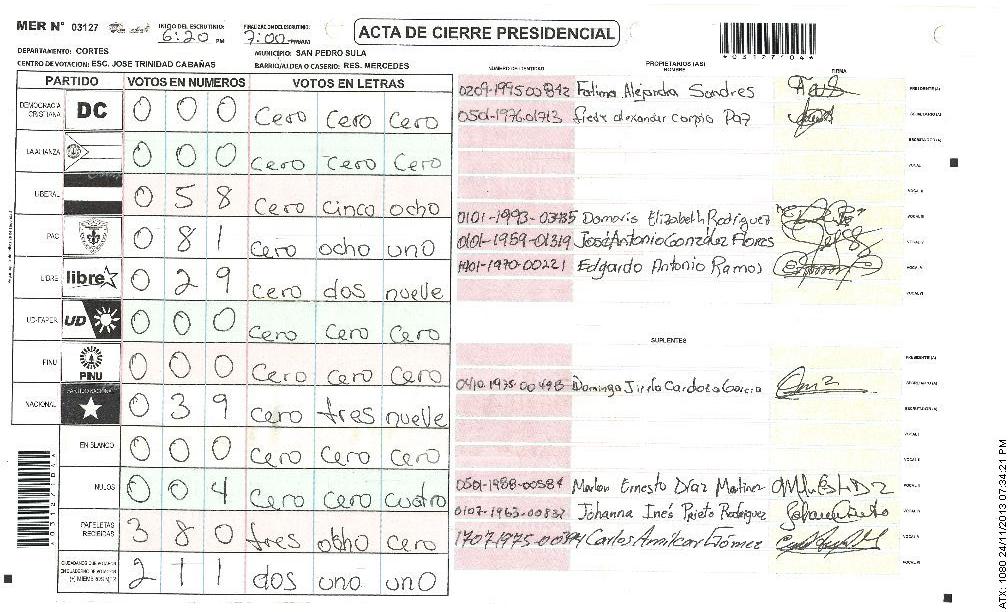 MER N° 03127 INICIO DEL ESCRUTINIO: 6:20 PM FINALIZACION DEL ESCRUTINIO: 7:00 PM/AM ACTA DE CIERRE PRESIDENCIAL
*03127104*
DEPARTAMENTO: CORTES MUNICIPIO: SAN PEDRO SULA
CENTRO DE VOTACION: ESC. JOSE TRINIDAD CABAÑAS BARRIO/ALDEA O CASERIO: RES. MERCEDES
PARTIDO VOTOS EN NUMEROS VOTOS EN LETRAS
DEMOCRACIA CRISTIANA DC 0 0 0 Cero Cero Cero
LA ALIANZA 0 0 0 Cero Cero Cero
LIBERAL 0 5 8 Cero Cinco ocho
PAC 0 8 1 Cero ocho uno
LIBRE libre 0 2 9 Cero dos nueve
UD-FAPER UD 0 0 0 Cero Cero Cero
PINU PINU 0 0 0 Cero Cero Cero
NACIONAL PARTIDO NACIONAL 0 3 9 Cero tres nueve
EN BLANCO 0 0 0 Cero Cero Cero
NULOS 0 0 4 Cero Cero cuatro
PAPELETAS RECIBIDAS 3 8 0 tres ocho cero
2 1 1 dos uno uno
NUMERO DE IDENTIDAD PROPIETARIOS (AS) NOMBRE FIRMA
0209-1995 00842 Fatima Alejandra Sandres PRESIDENTE(A)
0501-1976 01713 alexander carpio Paz SECRETARIO(A)
ESCRUTADOR(A)
VOCAL I
VOCAL II
0101-1993-03735 Damaris Elizabeth Rodriguez VOCAL III
0101-1959-01319 José Antonio González Flores VOCAL IV
1401-1970-00221 Edgardo Antonio Ramos VOCAL V
VOCAL VI
SUPLENTES
PRESIDENTE(A)
Cardoza Garcia SECRETARIO(A)
ESCRUTADOR(A)
VOCAL I
VOCAL II
0501-1988-00584 Marlon Ernesto Díaz Martinez VOCAL III
0107-1963-00832 Johanna Inés Prieto Rodriguez VOCAL IV
Carlos Amilcar Gómez VOCAL V
VOCAL VI
ATX: 1080 24/11/2013 07:34:21 PM